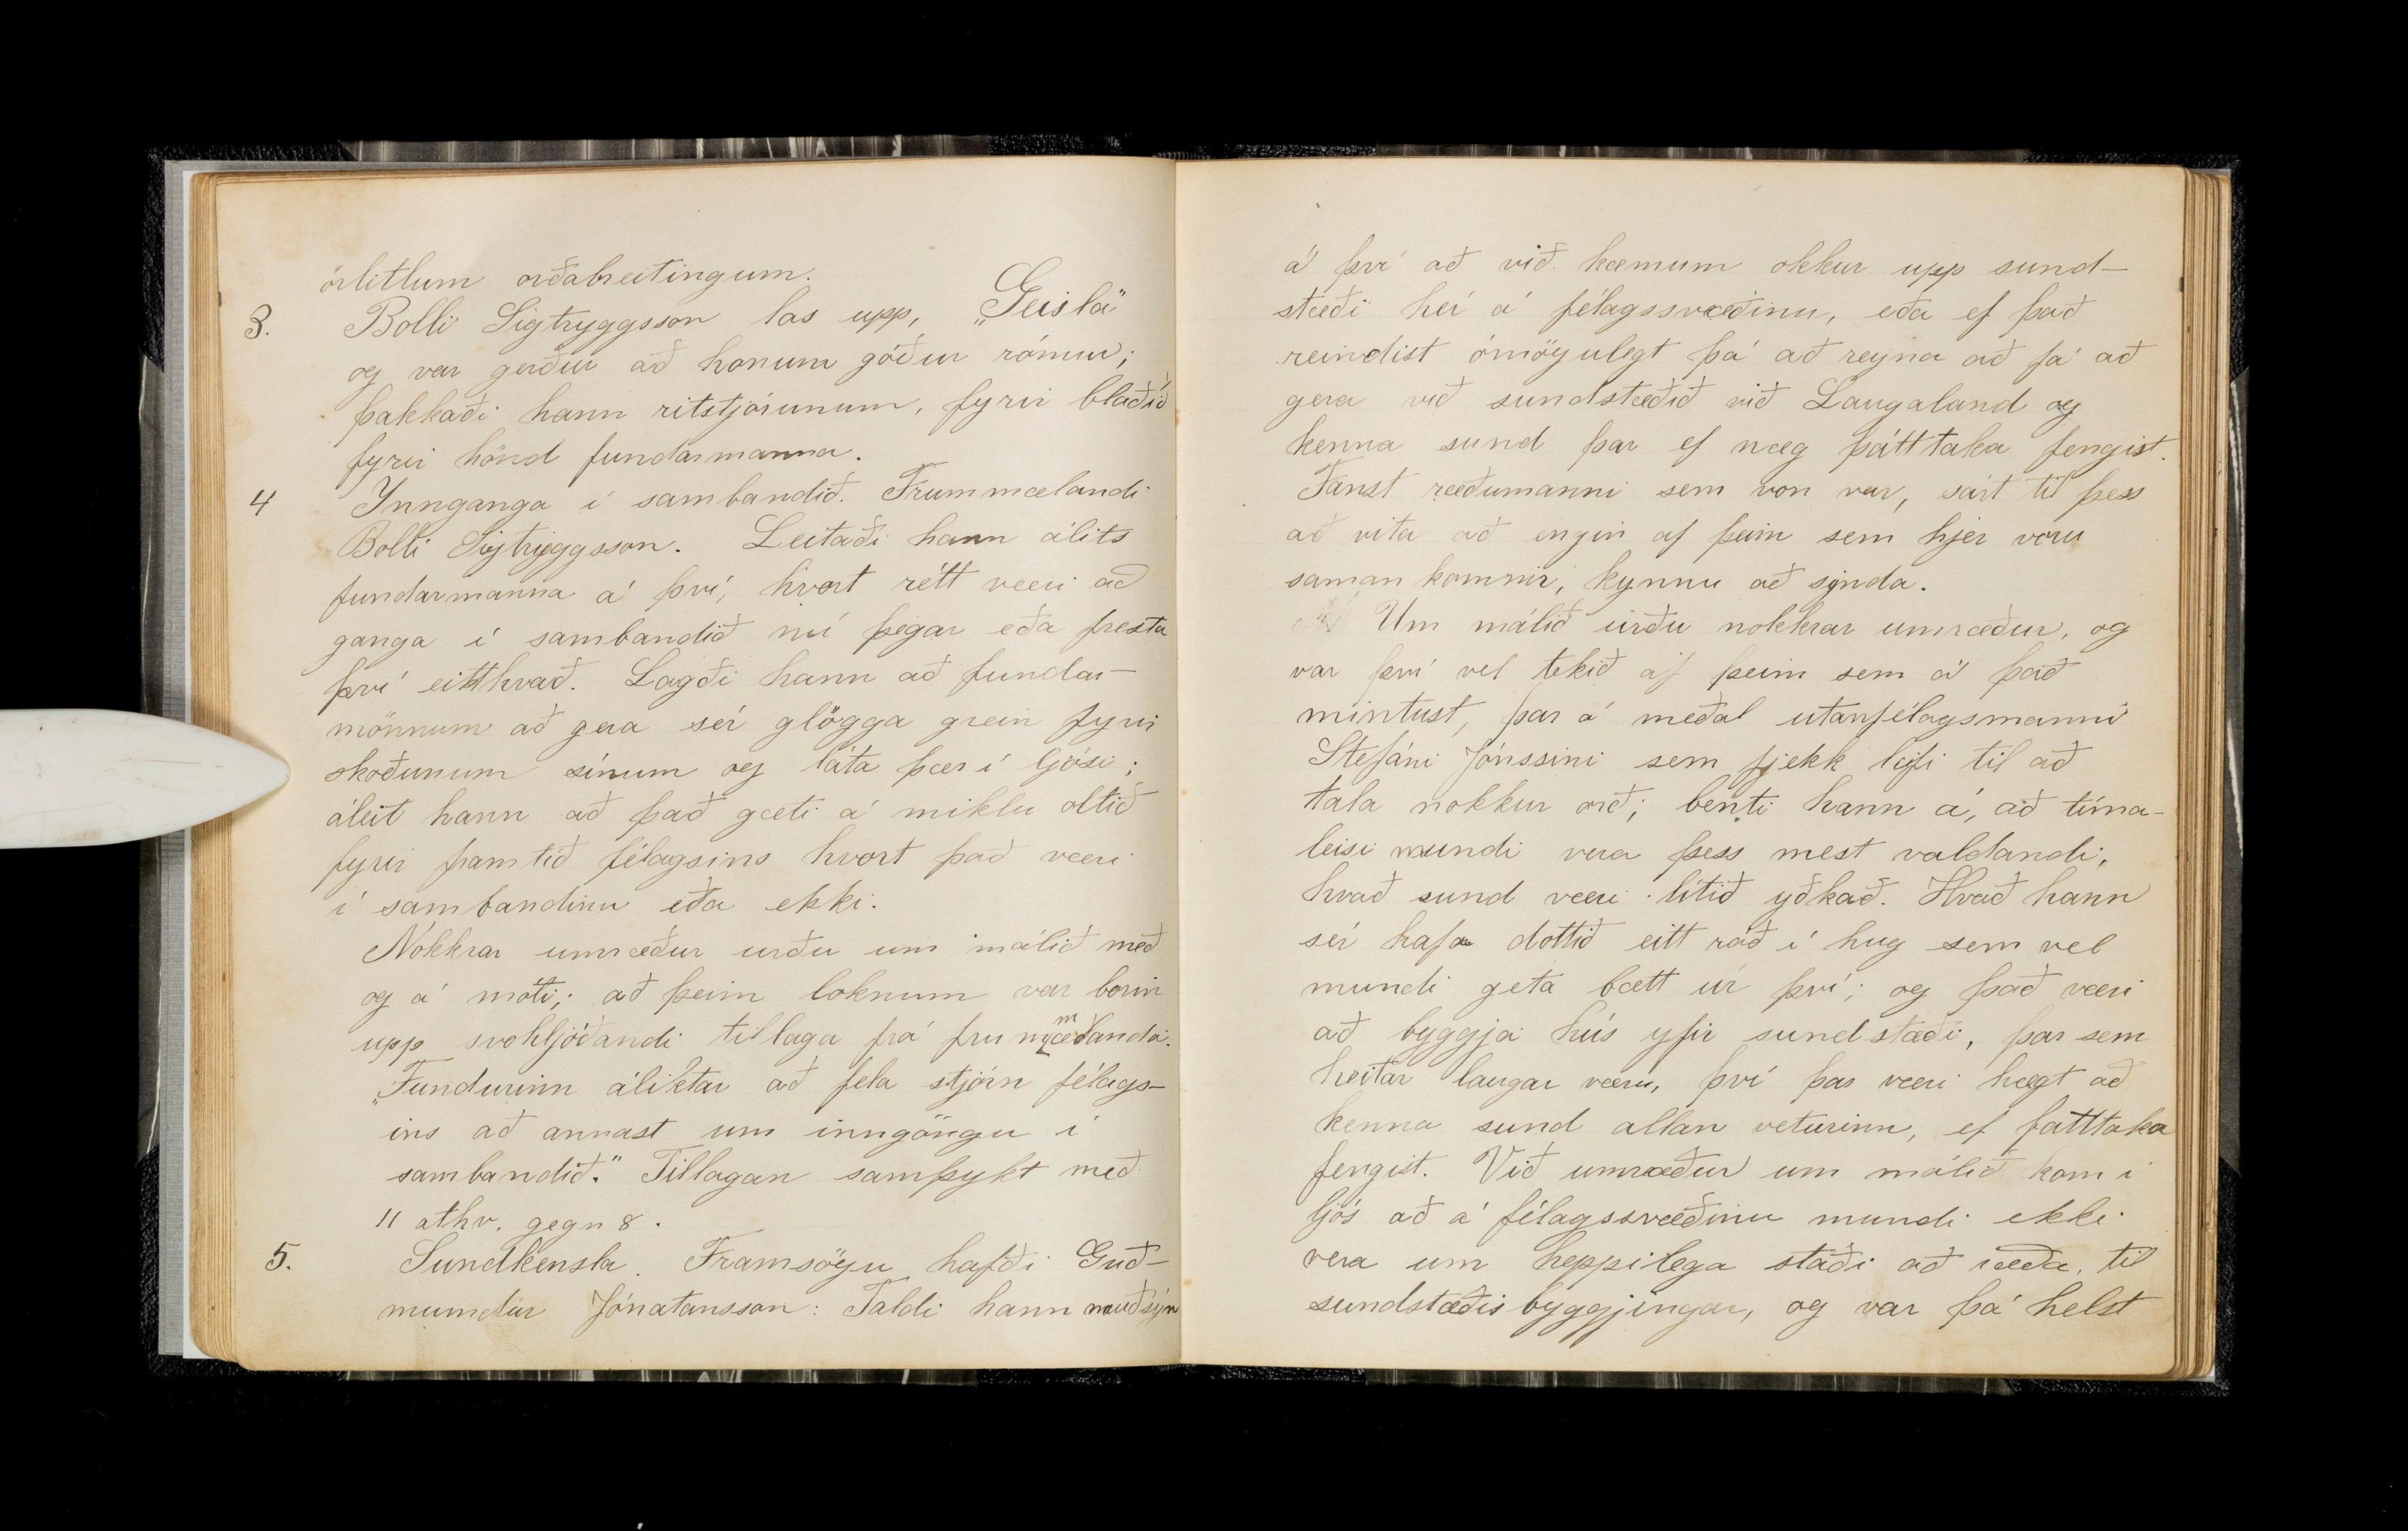 örlitlum orðabreitingum.
3. Bolli Sigtryggsson las upp, „Geisla"
og var gerður að honum góður rómur;
þakkaði hann ritstjórunum, fyrir blaðið
fyrir hönd fundarmanna.
4 Innganga í sambandið. Frummælandi
Bolli Sigtryggsson. Leitaði hann álits
fundarmanna á því, hvort rétt væri að
ganga í sambandið nú þegar eða fresta
því eitthvað. Lagði hann að fundar-
mönnum að gera sér glögga grein fyrir
skoðunum sínum og láta þær í ljósi;
áleit hann að það gæti á miklu oltið
fyrir framtíð félagsins hvort það væri
í sambandinu eða ekki.
Nokkrar umræður urðu um málið með
og á móti; að þeim loknum var borin
upp svohljóðandi tillaga frá frummælanda.
„Fundurinn áliktar að fela stjórn félags-
ins að annast um inngöngu í
sambandið." Tillagan samþykt með
11 athv. gegn 8.
5. Sundkensla. Framsögu hafði Guð-
mundur Jónatansson: Taldi hann nauðsýn
á því að við kæmum okkur upp sund-
stæði hér á félagssvæðinu, eða ef það
reindist ómögulegt þá að reyna að fá að
gera við sundstæðið við Laugaland og
kenna sund þar ef næg þátttaka fengist.
Fanst ræðumanni sem von var, sárt til þess
að vita að engin af þeim sem hjer voru
saman komnir, kynnu að synda.
Um málið urðu nokkrar umræður, og
var því vel tekið af þeim sem á það
mintust, þar á meðal utanfélagsmanni
Stefáni Jónssini sem fjekk leifi til að
tala nokkur orð; benti hann á, að tíma-
leisi mundi vera þess mest valdandi,
hvað sund væri lítið yðkað. Hvað hann
sér hafa dottið eitt ráð í hug sem vel
mundi geta bætt úr því; og það væri
að byggja hús yfir sundstæði, þar sem
heitar laugar væru, því þar væri hægt að
kenna sund allan veturinn, ef þátttaka
fengist. Við umræður um málið kom í
ljós að á félagssvæðinu mundi ekki
vera um heppilega staði að ræða, til
sundstæðisbyggjingar, og var þá helst